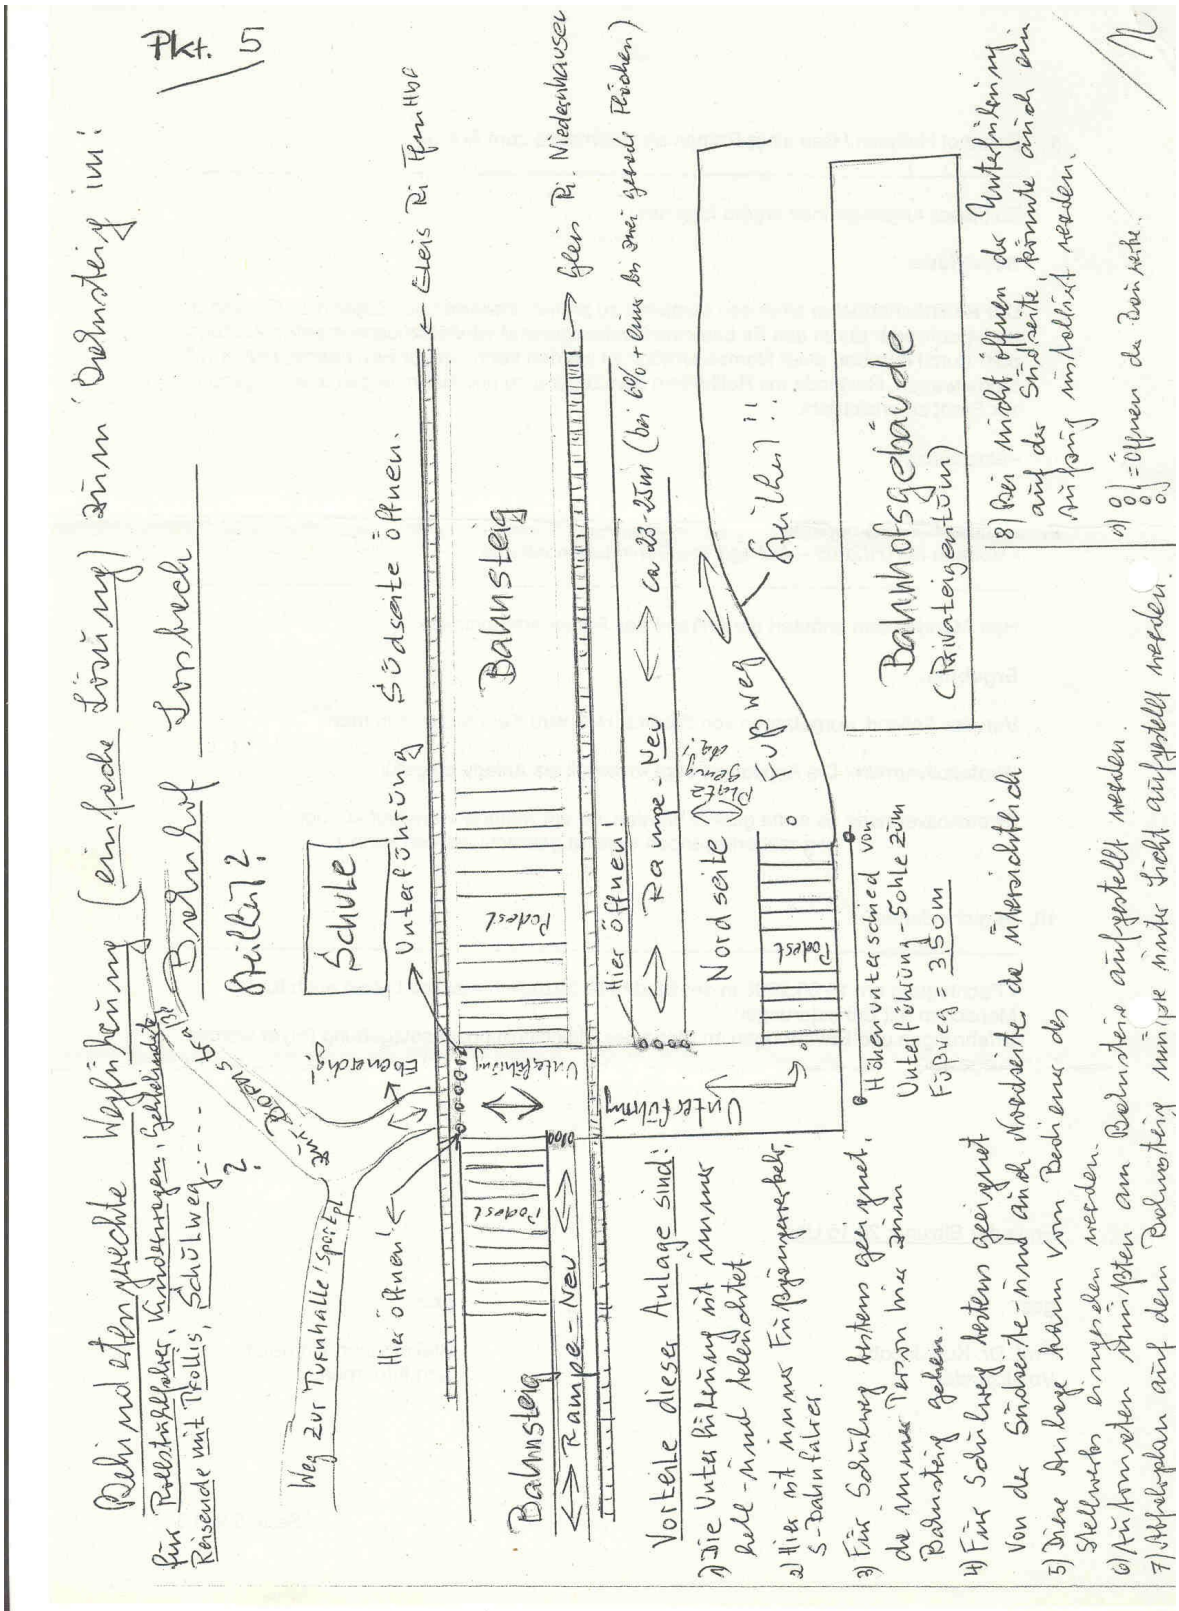 Pkt. 5
Behindertengerechte Wegführung (einfache Lösung) zum Bahnsteig im:
für Rollstuhlfahrer, Kinderwagen, Gehbehinderte,
Reisende mit Trollis, Schulweg....
Bahnhof Lorsbach
?
Steilheit?
Schule
Weg zur Turnhalle/Sportpl
zur Bornstr
Ebenerdig!
Hier öffnen!
Unterführung Südseite öffnen.
Gleis Ri Ffm Hbf
Bahnsteig
Podest
Unterführung
Podest
Bahnsteig
Rampe-Neu
Gleis Ri Niedernhausen
Unterführung
Hier öffnen!
Rampe-Neu ca 23-25m (bei 6% + eins bis zwei gerade Flächen)
Nordseite
Platz genug da!
Fußweg
Steilheit!!
Unterführung
Podest
Höhenunterschied von
Unterführung-Sohle zum
Fußweg = 3,50m
Bahnhofsgebäude
(Privateigentum)
Vorteile dieser Anlage sind:
1) Die Unterführung ist immer
hell- und beleuchtet
2) Hier ist immer Fußgängerverkehr,
S-Bahnfahrer.
3) Für Schulweg bestens geeignet,
da immer Person hier zum
Bahnsteig gehen.
4) Für Schulweg bestens geeignet
von der Südseite und auch Nordseite da übersichtlich
5) Diese Anlage kann vom Bediener des
Stellwerks eingesehen werden.
6) Automaten müßten am Bahnsteig aufgestellt werden.
7) Abfahrplan auf dem Bahnsteig müsste unter Licht aufgestellt werden.
8) Bei nicht öffnen der Unterführung
auf der Südseite könnte auch ein
Aufzug installiert werden.
= Öffnen der Bauseite.